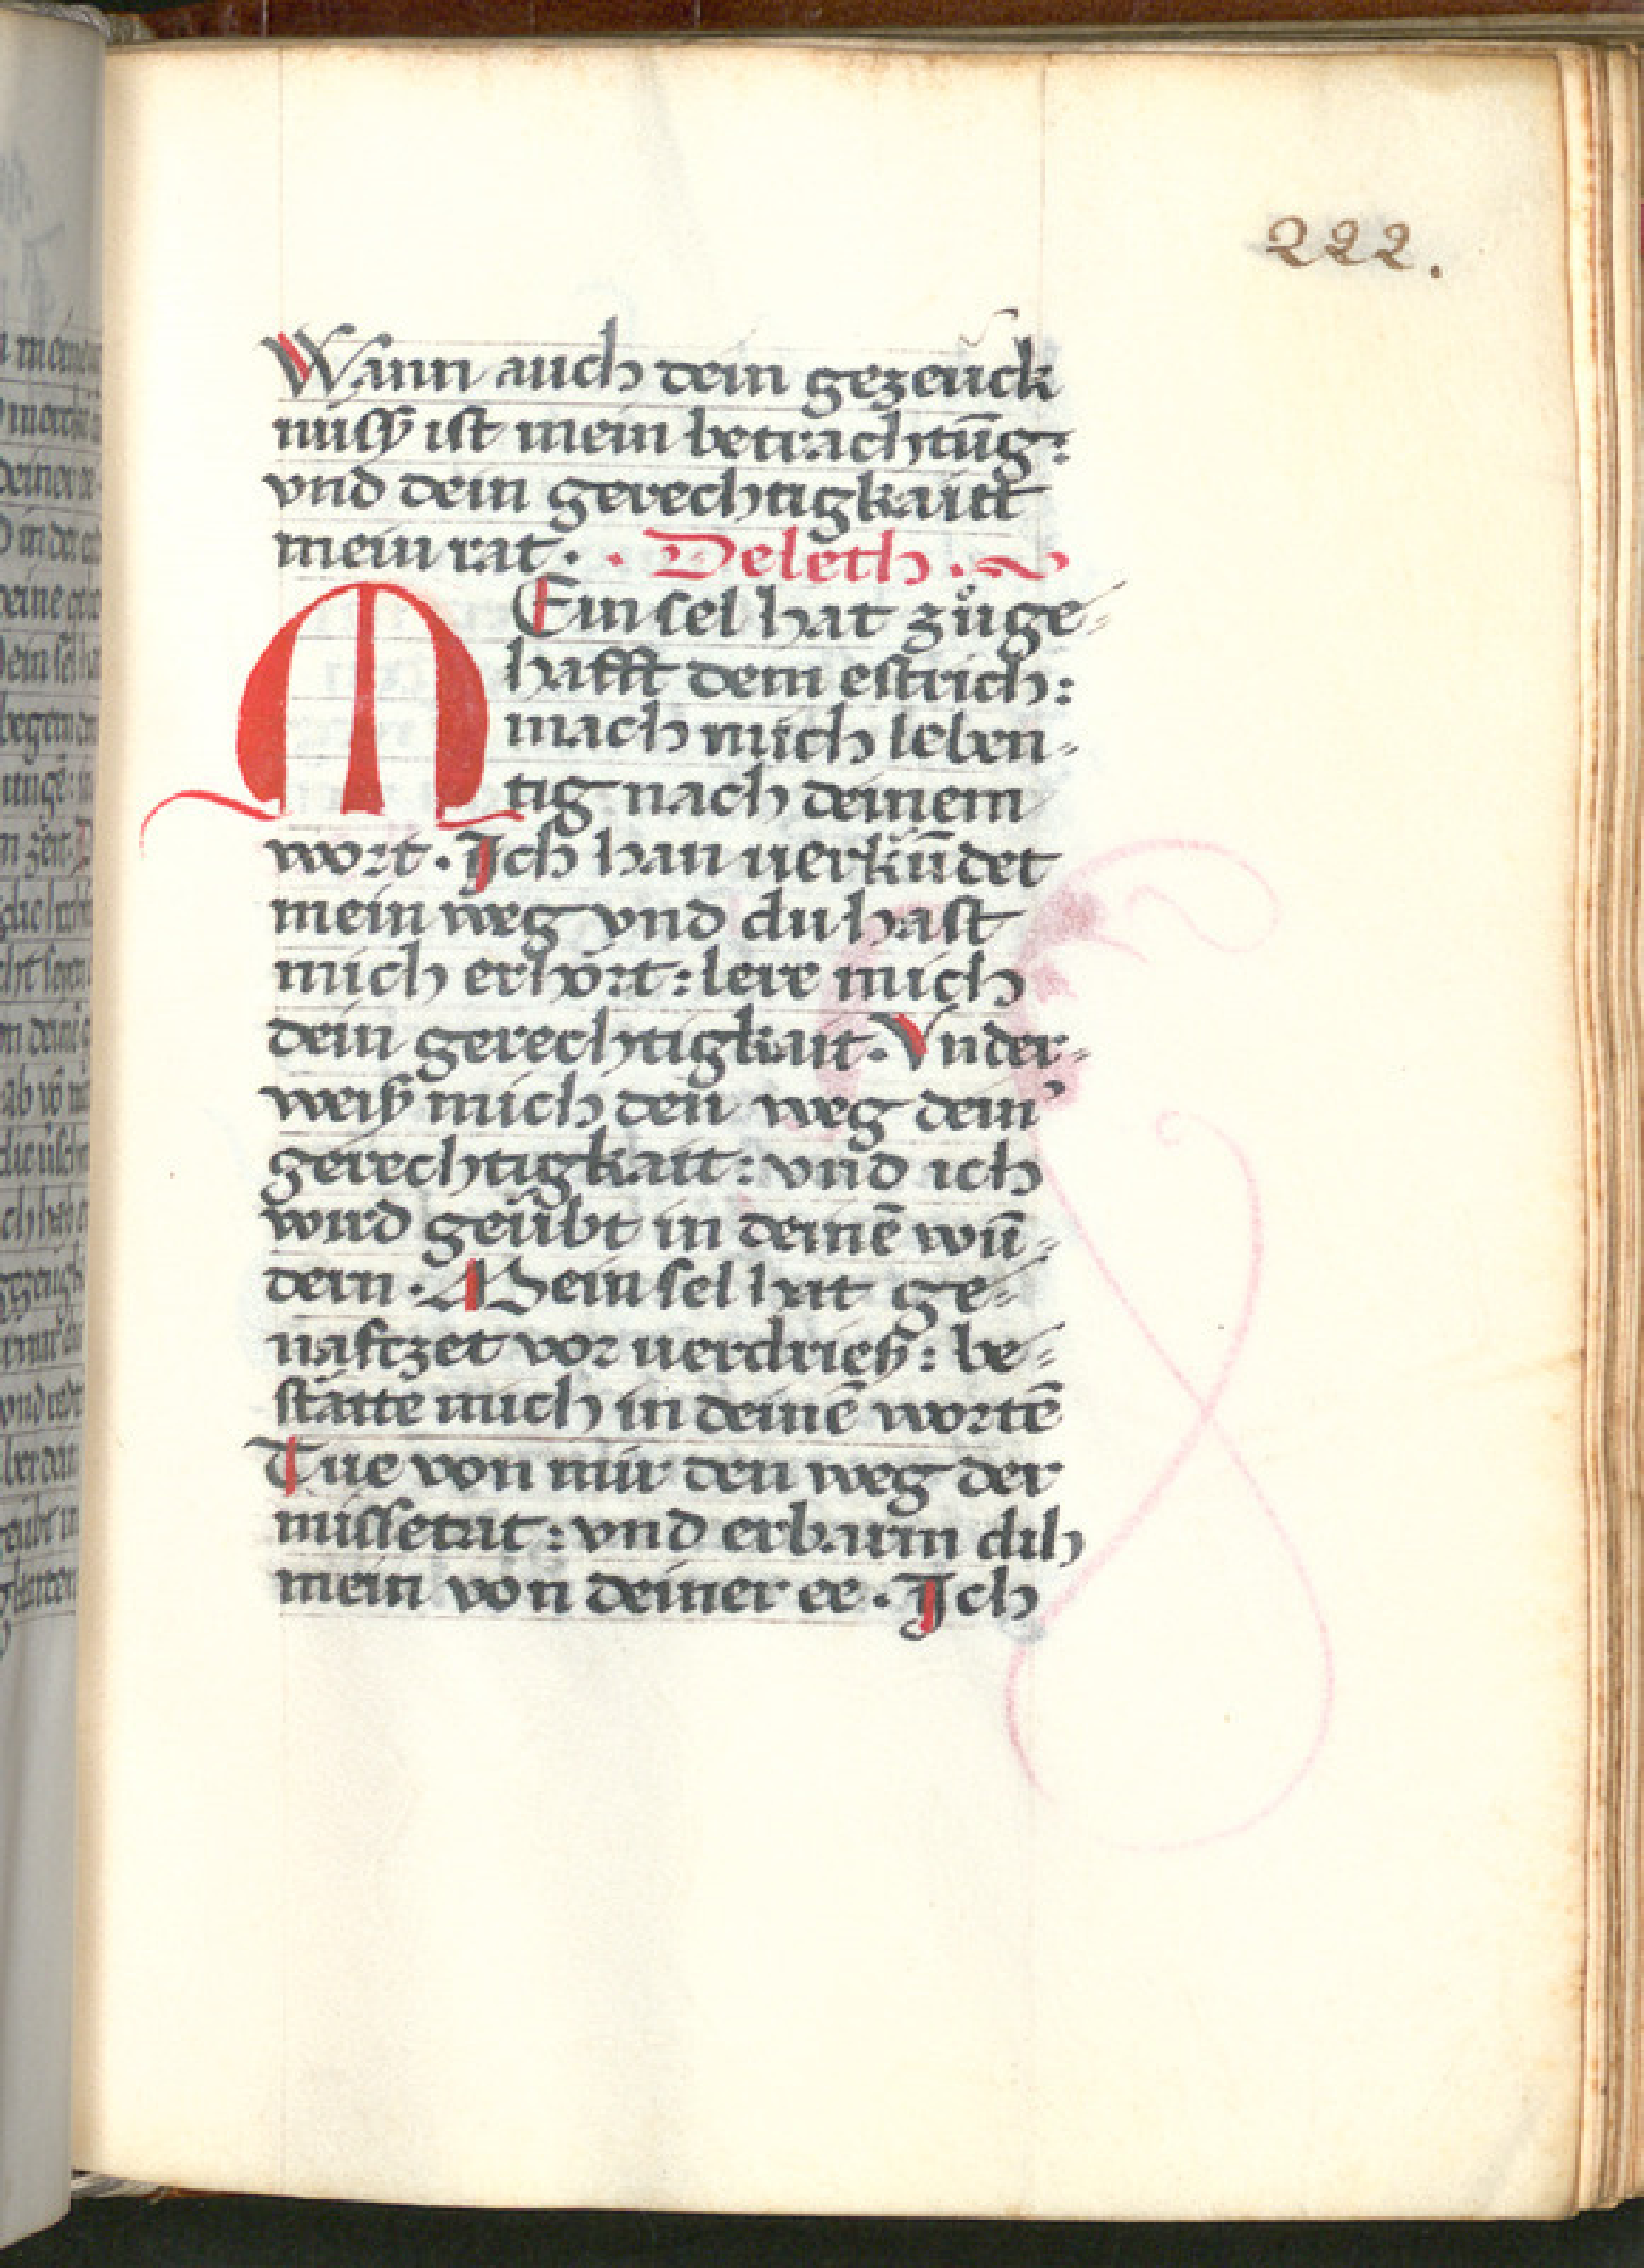 222.
Wann auch dein gezeück
nüss ist mein betrachtūg:
vnd dein gerechtigkaitt
mein rat. · Deleth · ~
MEin sel hat zůge⸗
hafft dem estrich:
mach mich leben⸗
tig nach deinem
wort. Ich han uerkündet
mein weg vnd du hast
mich erhört: lere mich
dein gerechtigkait. Vnder⸗
weiß mich den weg dein᾽
gerechtigkait: vnd ich
wird geübt in deinē wū⸗
dern. Mein sel hat ge⸗
naftzet vor uerdrieß: be⸗
stätte mich in deinē wortē
Tue von mir den weg der
missetat: vnd erbarm dih
mein von deiner ee. Ich